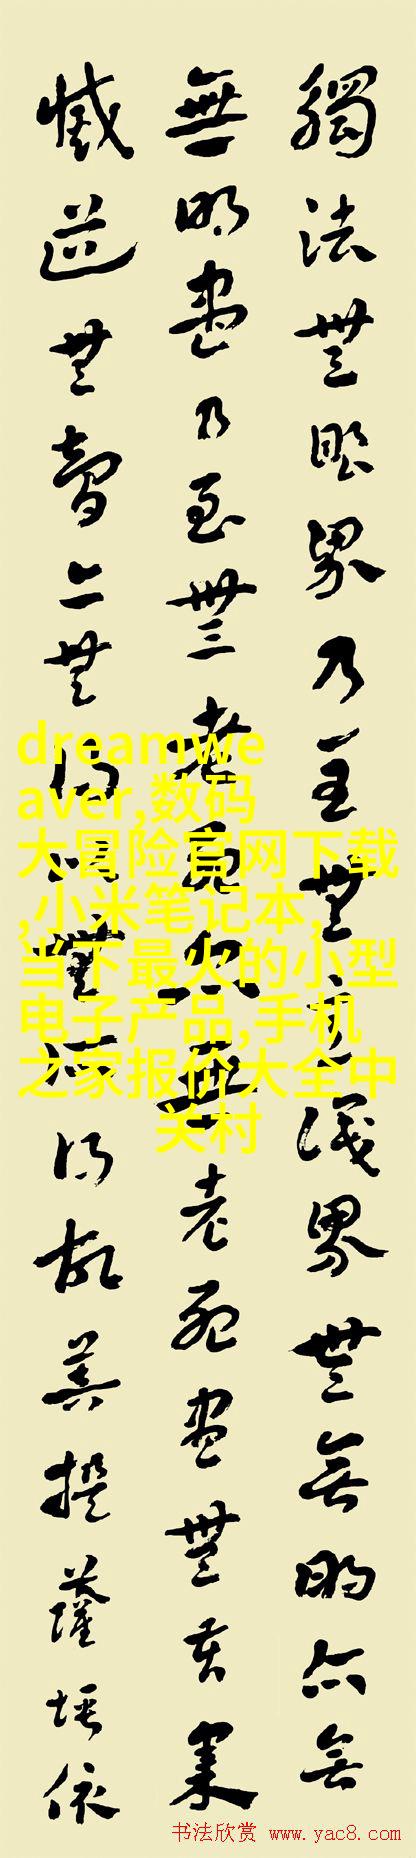 觸法無眼界乃至無意識界無無明亦無
無明盡乃至無老死亦無老死盡無苦集
滅道無智亦無得以無所得故菩提薩埵依
dreamwe
aver,数码
大冒险官网下载
,小米笔记本,
当下最火的小型
电子产品,手机
之家报价大全中
关村
书法欣赏 www.yac8.com